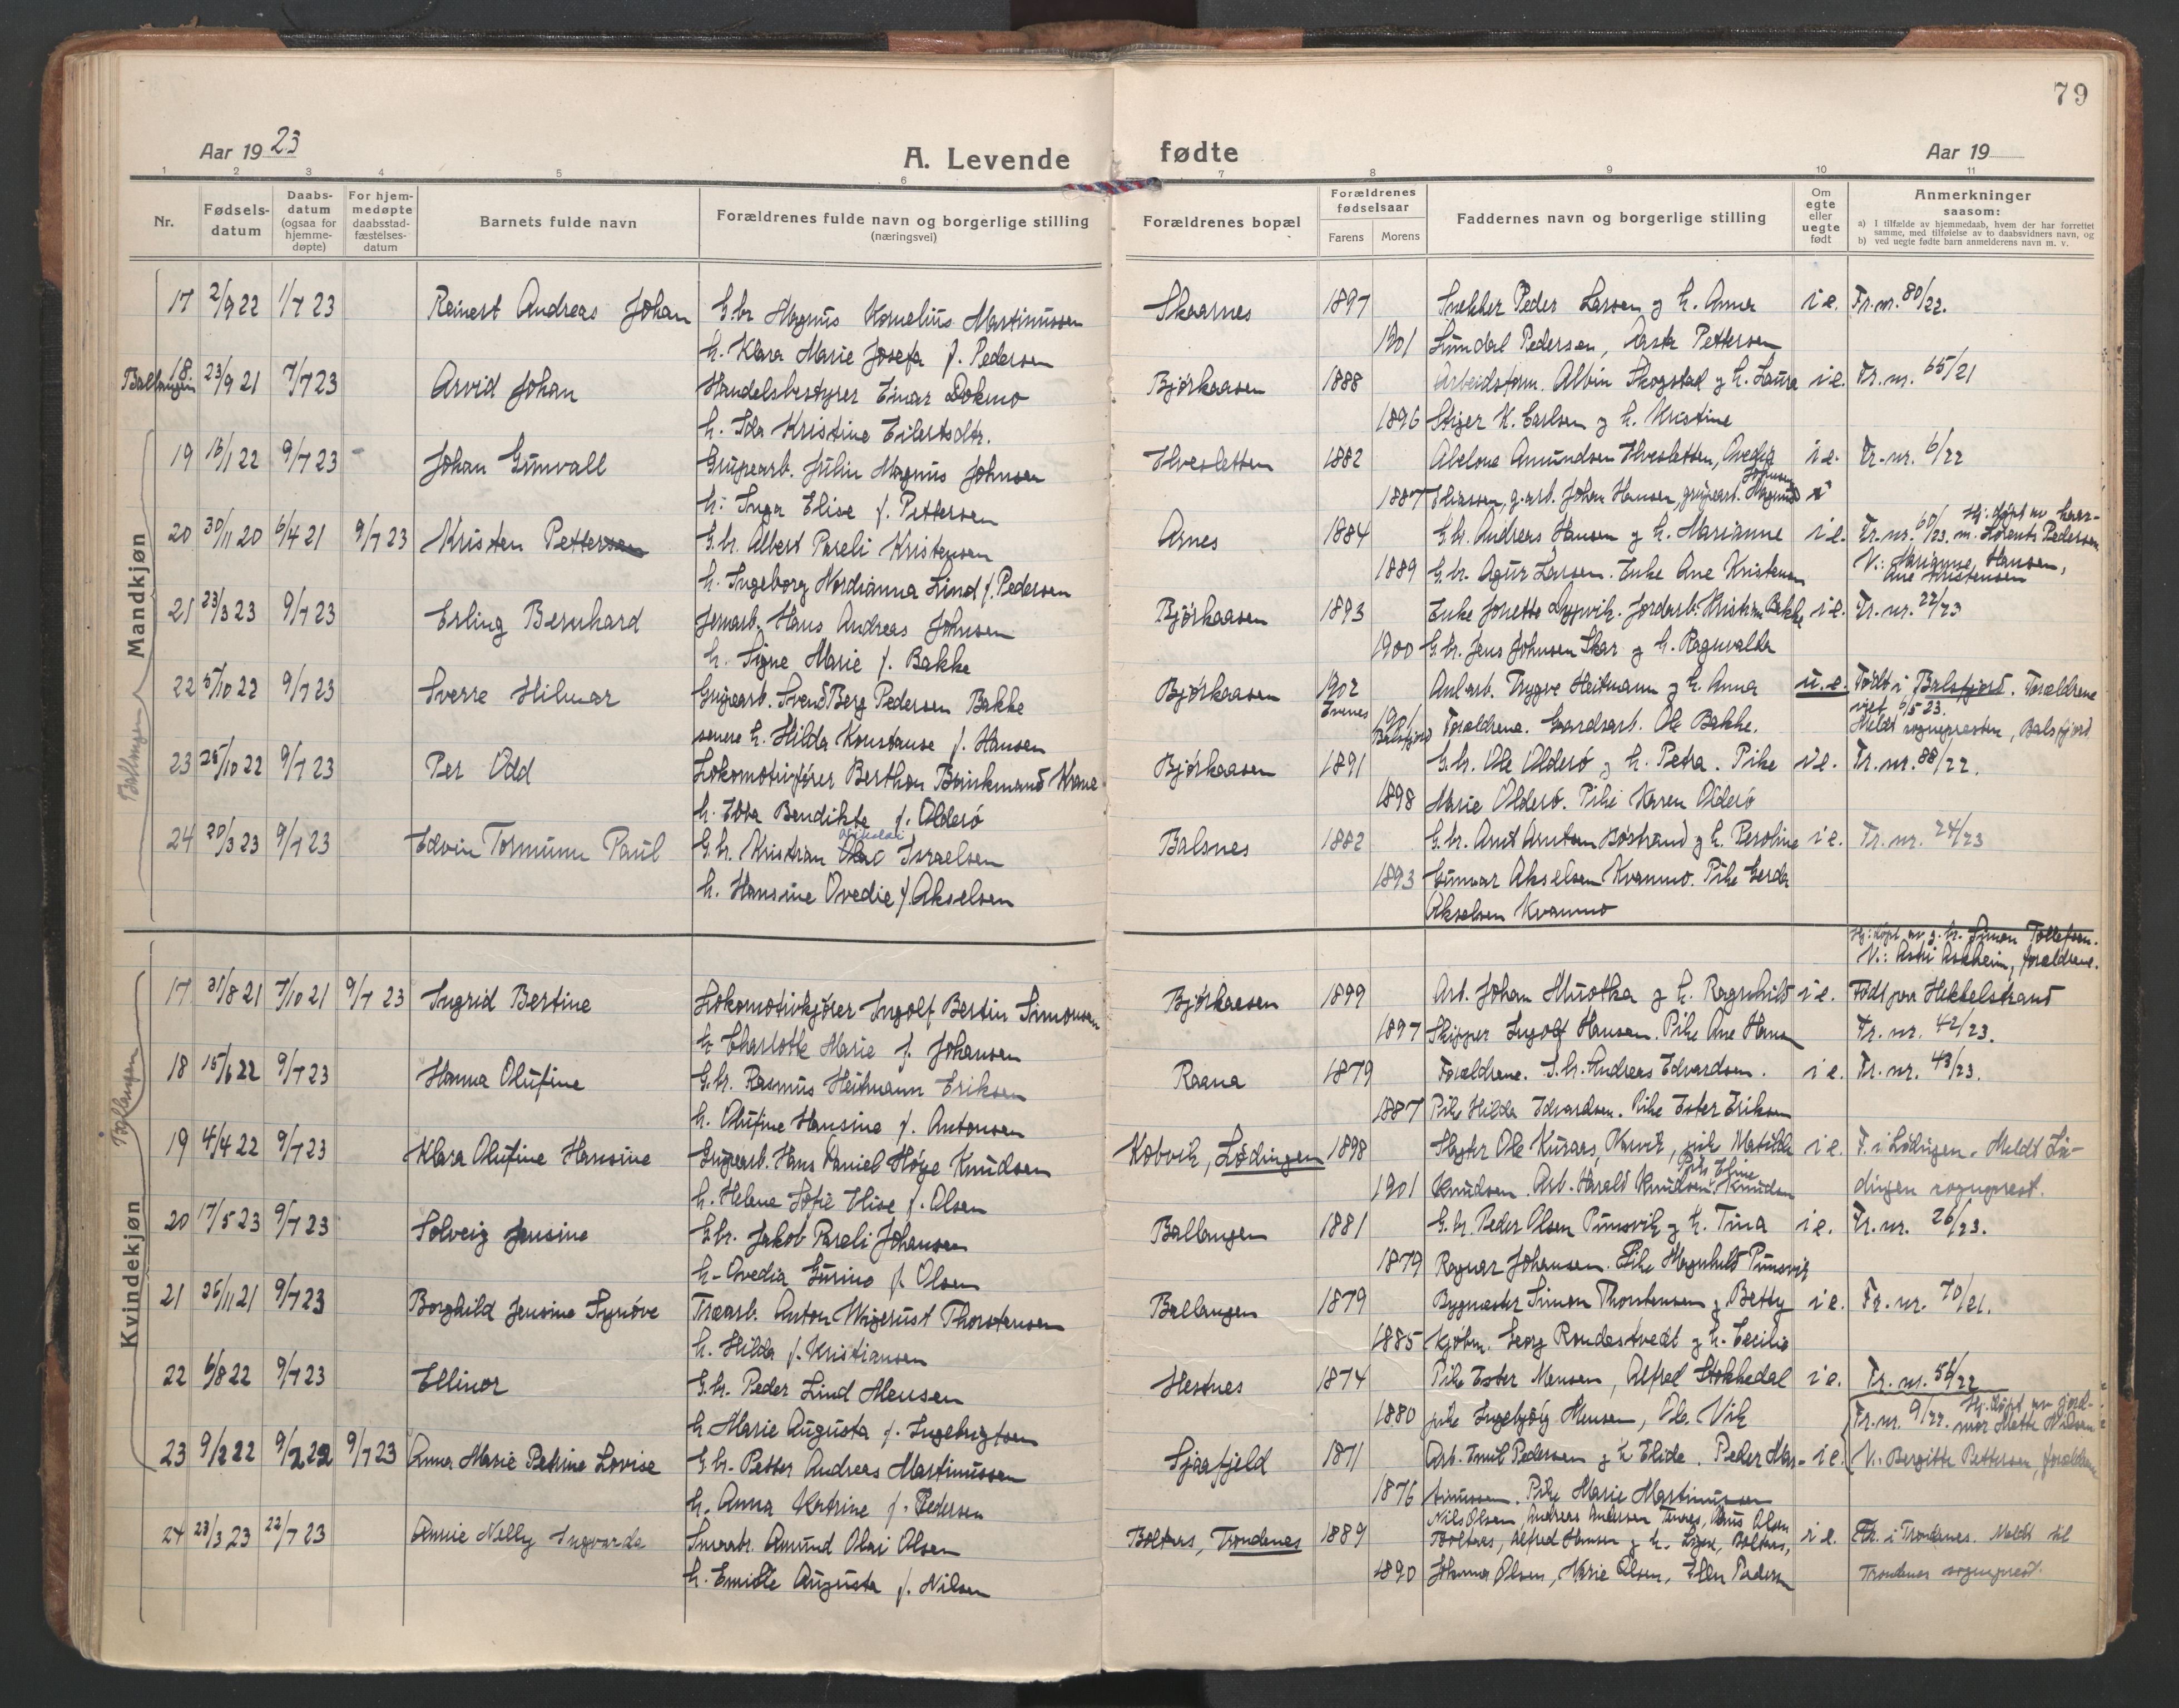 79
Aar 1923
A. Levende fødte
Aar 19
1 2 3 4 5 6 7 8 9 10 11
Nr.
Fødsels-datum
Daabs-datum (ogsaa for hjemme-døpte)
For hjem-medøpte daabsstad-fæstelses-datum
Barnets fulde navn
Forældrenes fulde navn og borgerlige stilling (næringsvei)
Forældrenes bopæl
Forældrenes fødselsaar
Farens
Morens
Faddernes navn og borgerlige stilling
Om egte eller uegte født
Anmerkninger saasom:
a) I tilfælde av hjemmedaab, hvem der har forrettet samme, med tilføielse av to daabsvidners navn, og
b) ved uegte fødte barn anmelderens navn m. v.
Mandkjøn
Ballangen
17 2/9 22 1/7 23 Reinert Andreas Johan G.br. Magnus Kornelius Martinussen Skarnes 1897 Snekker Peder Larsen og h. Anna i e. Fr. nr. 80/22.
h. Klara Marie Josefa f. Pedersen 1901 Lundal Pedersen, Aasta Pettersen
Ballangen 18 23/9 21 7/7 23 Arvid Johan Handelsbestyrer Einar Dokmo Bjørkaasen 1888 Arbeidsform. Albin Skogstad og h. Laura i e. Fr. nr. 65/21
h. Ida Kristine Eilertsdtr. 1896 Stiger K. Carlsen og h. Kristine
19 16/1 22 9/7 23 Johan Gunvall Grubearb. Julin Magnus Johnsen Hvesletten 1882 Abelone Amundsen Hvesletten, Ovedia i e. Fr. nr. 6/22
h. Inga Elise f. Pettersen 1887 Eliassen, g.arb. Johan Hansen, grubearb. Magnus Johnsen
20 30/11 20 6/4 21 9/7 23 Kristen Pettersen G.br. Albert Pareli Kristensen Arnes 1884 G.br. Andreas Hansen og h. Marianne i e. Fr. nr. 60/23. Hj. døpt av lærer m. Lorents Pedersen
h. Ingeborg Nordianna Lind f. Pedersen 1889 G.br. Agur Larsen. Enke Ane Kristensen V.: Marianne Hansen, Ane Kristensen
21 23/3 23 9/7 23 Erling Bernhard Jernarb. Hans Andreas Johnsen Bjørkaasen 1893 Enke Jonette Dypvik. Jordarb. Kristian Bakke i e. Fr. nr. 22/23
h. Signe Marie f. Bakke 1900 G.br. Jens Johnsen Skar og h. Ragnvalda
22 5/10 22 9/7 23 Sverre Hilmar Grubearb. Svend Berg Pedersen Bakke Bjørkaasen 1902 Evenes Anl.arb. Trygve Heitmann og h. Anna u. e. Født i Balsfjord. Forældrene viet 6/5 23.
senere h. Hilda Konstanse f. Hansen 1901 Balsfjord Forældrene. Gaardsarb. Ole Bakke. Meldt sognepresten, Balsfjord
23 25/10 22 9/7 23 Per Odd Lokomotivfører Berthon Brinkmand Krane Bjørkaasen 1891 G.br. Ole Olderø og h. Petra. Pike i e. Fr. nr. 88/22.
h. Ebba Bendikte f. Olderø 1898 Marie Olderø. Pike Karen Olderø
24 20/3 23 9/7 23 Edvin Tormunn Paul G.br. Kristian Nikolai Israelsen Balsnes 1882 G.br. Arnt Arntsen Bøstrand og h. Peroline i e. Fr. nr. 24/23
h. Hansine Ovedie f. Akselsen 1893 Gunnar Akselsen Kvanmo. Pike Gerda
Akselsen Kvanmo
Kvindekjøn
Ballangen
Hj. døpt av g. br. Simon Tollefsen.
V.: Astri Askheim, forældrene.
17 31/8 21 7/10 21 9/7 23 Ingrid Bertine Lokomotivkjører Ingolf Bertin Simonsen Bjørkaasen 1899 Arb. Johan Muotka og h. Ragnhild i e. Født paa Hekkelstrand
h. Charlotte Marie f. Johansen 1897 Skipper Ingolf Hansen. Pike Ane Hansen Fr. nr. 42/23.
18 15/6 22 9/7 23 Hanna Olufine G.br. Rasmus Heitmann Eriksen Raana 1879 Forældrene. G.br. Andreas Edvardsen. i e. Fr. nr. 43/23.
h. Olufine Hansine f. Antonsen 1887 Pike Hilda Edvardsen. Pike Ester Eriksen
19 4/4 22 9/7 23 Klara Olufine Hansine Grubearb. Hans Daniel Høye Knudsen Kobvik, Lødingen 1898 Ole Kuraas, pike Matilde i e. F. i Lødingen. Meldt Lø-
h. Helene Sofie Elise f. Olsen 1901 Knudsen. Arb. Harald Knudsen. Pike Eline Knudsen dingen sogneprest.
20 17/5 23 9/7 23 Solveig Jensine G.br. Jakob Pareli Johansen Ballangen 1881 G.br. Peder Olsen Pundsvik og h. Tina i e. Fr. nr. 26/23.
h. Ovedia Gurine f. Olsen 1879 Ragnar Johansen. Pike Magnhild Pundsvik
21 26/11 21 9/7 23 Borghild Jensine Synøve Træarb. Anton Wigerust Thorstensen Ballangen 1879 Bygmester Simon Thorstensen og Betty i e. Fr. nr. 70/21.
h. Hilda f. Kristiansen 1885 Kjøbm. Georg Rondestvedt og h. Cecilie
22 6/8 22 9/7 23 Ellinor G.br. Peder Lind Mensen Hestnes 1874 Pike Ester Mensen, Alfred Stokkedal i e. Fr. nr. 56/22
h. Marie Augusta f. Ingebrigtsen 1880 pike Ingebjørg Mensen, Ole Vik
23 9/2 22 9/2 22 9/7 23 Anna Marie Petrine Lovise G.br. Petter Andreas Martinussen Sjaafjeld 1871 Arb. Emil Pedersen og h. Elide. Peder Mar- i e. Fr. nr. 9/22. Hj. døpt av jord-mor Mette Nilsen
h. Anna Katrine f. Pedersen 1876 tinussen. Pike Marie Martinussen V.: Bergitte Pettersen, forældrene
24 23/3 23 22/7 23 Annie Nelly Ingvarda Smaabr. Amund Olai Olsen Boltaas, Trondenes 1889 Nils Olsen, Andreas Andersen Tennes, Olsen Boltaas, Alfred Hansen og h. Boltaas, i e. Fød. i Trondenes. Meldt til
h. Emilie Augusta f. Nilsen 1890 Johanna Olsen, Marie Olsen, Ellen Pedersen Trondenes sogneprest.